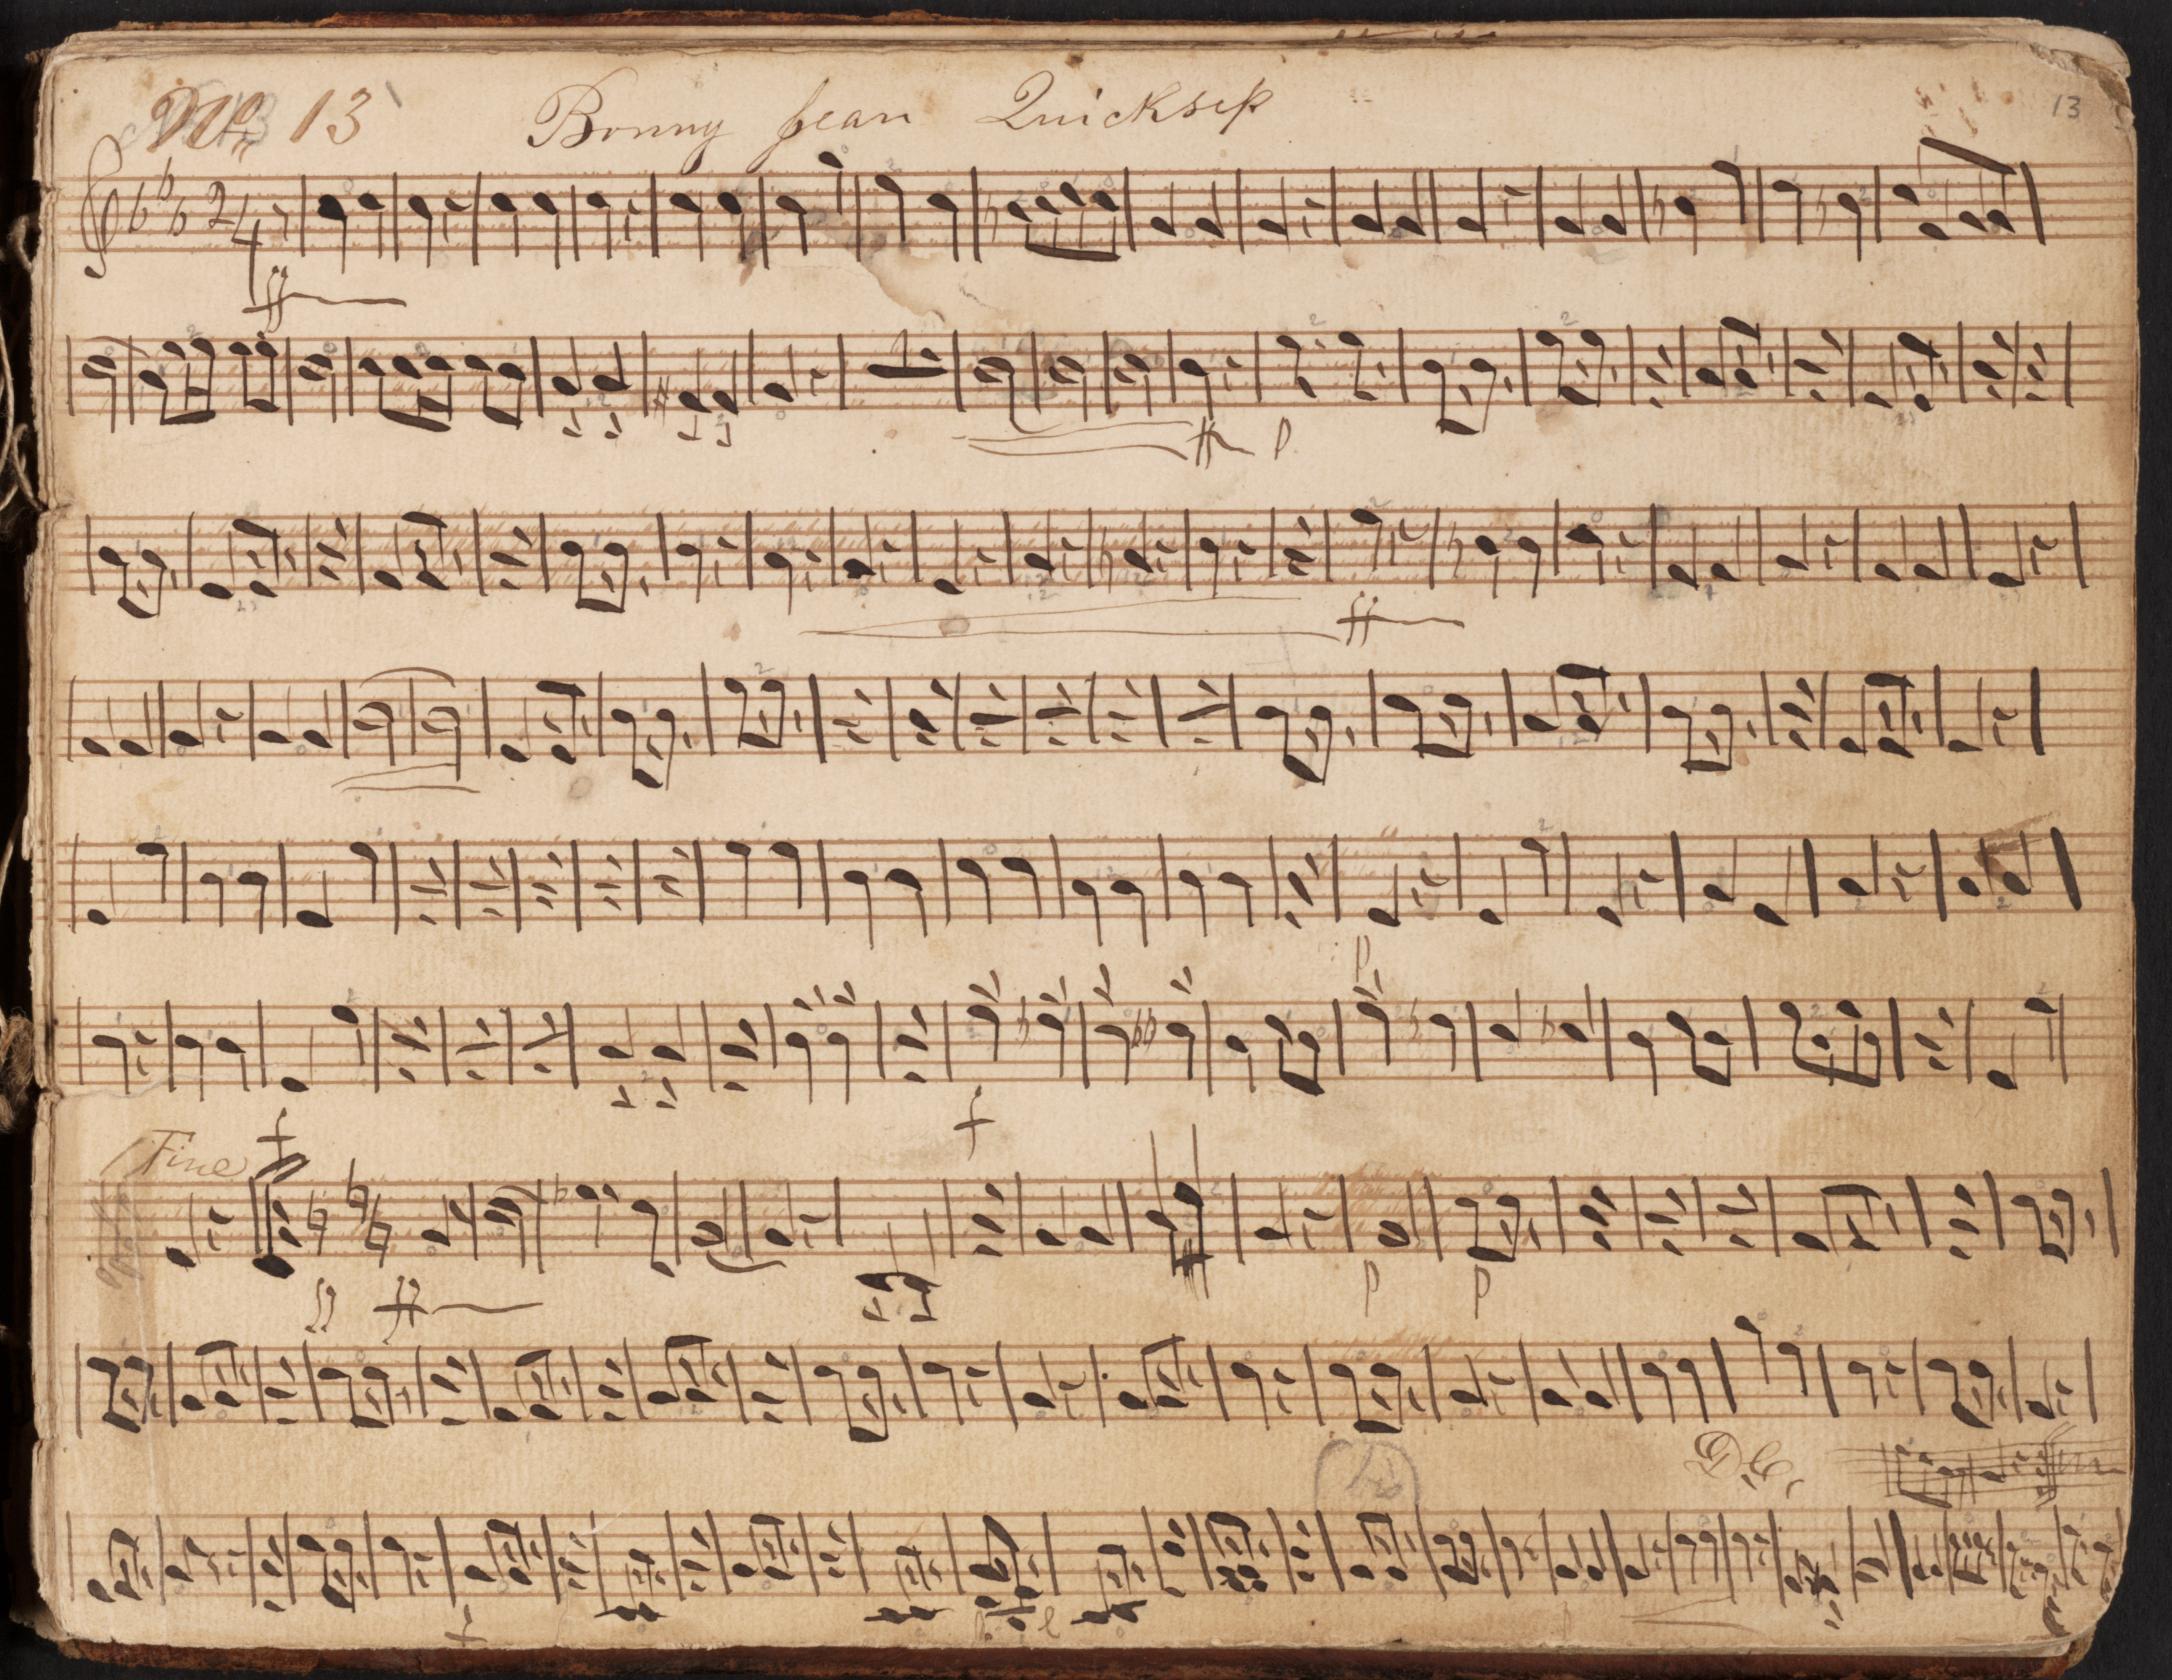 No. 13 Bonny Jean Quickstep 13
2/4
ff
ff p
ff
p
f
Fine f
ff p p
D.C.
f